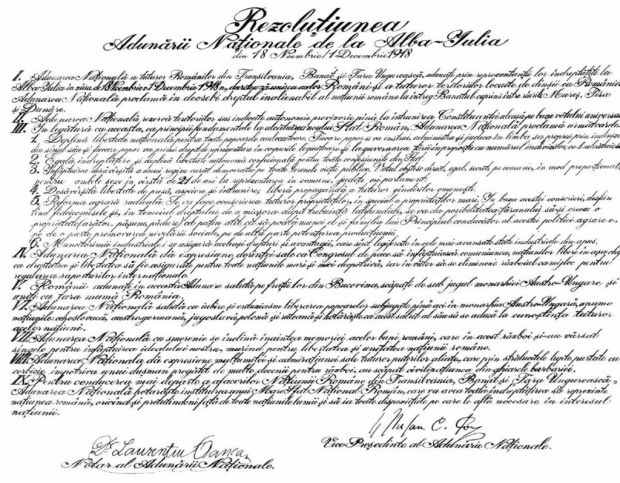 Rezoluțiunea
Adunării Naționale de la Alba-Iulia
din 18 Noembrie/1 Decembrie 1918
I. Adunarea Națională a tuturor Românilor din Transilvania, Banat și Țara Ungurească, adunați prin reprezentanții lor îndreptățiți la
Alba-Iulia în ziua de 18 Noembrie/1 Decembrie 1918, decretează unirea acelor Români și a tuturor teritoriilor locuite de dînșii cu România.
Adunarea Națională proclamă în deosebi dreptul inalienabil al națiunii române la întreg Banatul cuprins între rîurile Murăș, Tisa
și Dunăre.
II. Adunarea Națională rezervă teritoriilor sus indicate autonomie provizorie până la întrunirea Constituantei aleasă pe baza votului universal.
III. În legătură cu aceasta, ca principii fundamentale la alcătuirea noului Stat Român, Adunarea Națională proclamă următoarele:
1. Deplină libertate națională pentru toate popoarele conlocuitoare. Fiecare popor se va instrui, administra și judeca în limba sa proprie prin indivizi
din sînul său și fiecare popor va primi drept de reprezentare în corpurile legiuitoare și la guvernarea țării în proporție cu numărul indivizilor ce-l alcătuesc.
2. Egală îndreptățire și deplină libertate autonomă confesională pentru toate confesiunile din Stat.
3. Înfăptuirea desăvârșită a unui regim curat democratic pe toate terenele vieții publice. Votul obștesc, direct, egal, secret, pe comune, în mod proporțional,
pentru ambele sexe în vârstă de 21 de ani la reprezentarea în comune, județe, ori parlament.
4. Desăvârșita libertate de presă, asociere și întrunire; libera propagandă a tuturor gîndurilor omenești.
5. Reforma agrară radicală. Se va face conscrierea tuturor proprietăților, în special a proprietăților mari. În baza acestei conscrieri, desființând
fideicomisele și, în temeiul dreptului de a micșora după trebuință latifundiile, se va da posibilitatea țăranului să-și creeze o
proprietate (arător, pășune, pădure) cel puțin atât cât să poată munci el și familia lui. Principiul conducător al acestei politici agrare e
pe de o parte promovarea nivelării sociale, pe de altă parte potențarea producțiunii.
6. Muncitorimei industriale i se asigură aceleași drepturi și avantagii, cari sunt legiferate în cele mai avansate state industriale din apus.
IV. Adunarea Națională dă expresiune dorinței sale, ca Congresul de pace să înfăptuiască comuniunea națiunilor libere în așa chip,
ca dreptatea și libertatea să fie asigurate pentru toate națiunile mari și mici deopotrivă, iar în viitor să se elimineze războiul ca mijloc pentru
regularea raporturilor internaționale.
V. Românii adunați în această Adunare salută pe frații lor din Bucovina, scăpați de sub jugul monarchiei Austro-Ungare și
uniți cu țara mamă România.
VI. Adunarea Națională salută cu iubire și entuziasm liberarea popoarelor subjugate până aci în monarchia Austro-Ungară, anume
națiunile: cehoslovacă, austrogermană, jugoslavă, polonă și ruteană și hotărăște ca acest salut al său să se aducă la cunoștința tuturor
acelor națiuni.
VII. Adunarea Națională cu smerenie se închină înaintea memoriei acelor bravi români, care în acest războiu și-au vărsat
sîngele pentru înfăptuirea idealului nostru, murind pentru libertatea și unitatea națiunii române.
VIII. Adunarea Națională dă expresiune mulțumitei și admirațiunei sale tuturor puterilor aliate, care prin strălucitele lupte purtate cu
cerbicie împotriva unui dușman pregătit de multe decenii pentru războiu, au scăpat civilizațiunea din ghiarele barbariei.
IX. Pentru conducerea mai departe a afacerilor Națiunii Române din Transilvania, Banat și Țara Ungurească,
Adunarea Națională hotărăște instituirea unui Mare Sfat Național Român, care va avea toată îndreptățirea să reprezinte
națiunea română, oricând și pretutindeni față de toate națiunile lumii și să ia toate dispozițiile pe care le va afla necesare în interesul
națiunii.
Dr. Laurențiu Oanea
Notar al Adunării Naționale.
Ștefan C. Pop
Vice Președinte al Adunării Naționale.